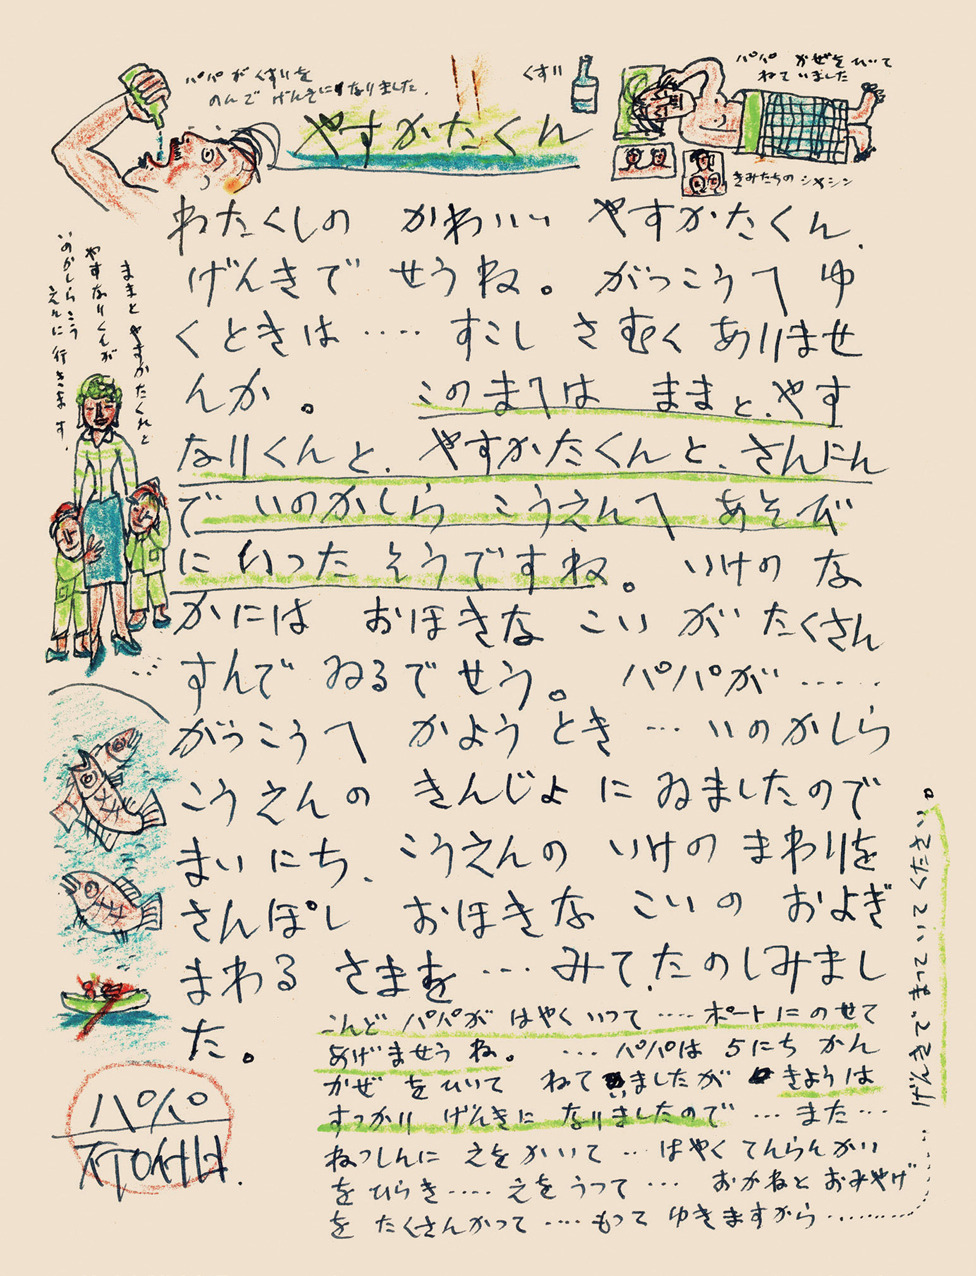 パパ が くすりを
のんで げんきに なりました.
くすり
パパ かぜを ひいて
ねて いました
きみたちの シャシン
やすかたくん
わたくしの かわいい やすかたくん.
げんきで せうね。 がっこうへ ゆ
くときは ‥‥ すこし さむく ありませ
んか 。 このまへは ままと、やす
なりくんと、やすかたくんと、さんにん
で いのかしら こうえんへ あそび
に いった そうですね。 いけの な
かには おほきな こい が たくさん
すんで ゐるでせう。 パパが ‥‥‥
がっこうへ かよう とき … いのかしら
こうえんの きんじょに ゐましたので
まいにち、 こうえんの いけの まわりを
さんぽし おほきな こいの およぎ
まわる さまを … みて、たのしみまし
た。
ままと やすかたくんと
やすなりくんが
いのかしらこう
えんに 行きます.
こんど パパが はやく いって ‥‥ ボートに のせて
あげませうね。 … パパは 5にち かん
かぜ を ひいて ねて いましたが きようは
すっかり げんきに なりましたので … また …
ねっしんに えを かいて … はやく てんらんかい
を ひらき ‥‥ えを うって … おかねと おみやげ
を たくさんかって ‥‥ もって ゆきますから ‥‥‥‥
げんきで まって いて ください。
パパ